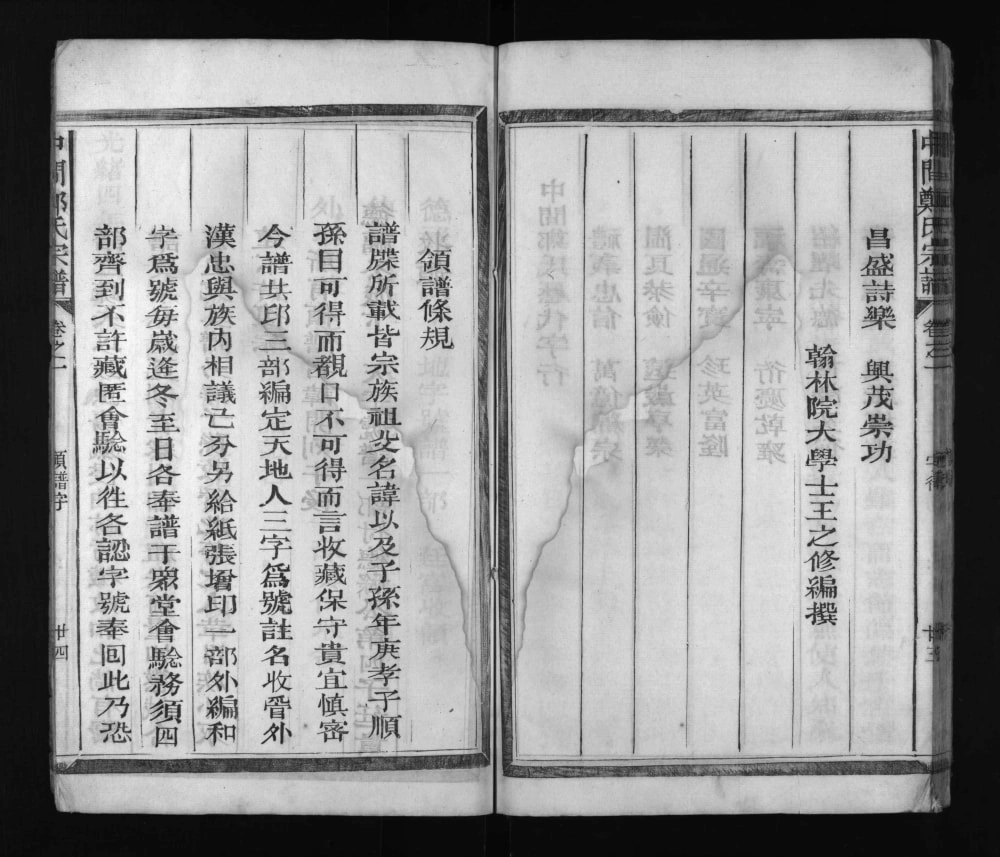 中閭鄭氏宗譜 卷之一 廿三
昌盛詩樂 興茂崇功
翰林院大學士王之修編撰
領譜條規
譜牒所載皆宗族祖父名諱以及子孫年庚孝子順
孫目可得而覩口不可得而言收藏保守貴宜慎密
今譜共印三部編定天地人三字爲號註名收管外
漢忠與族内相議己分另給紙張增印一部外編和
字爲號每歲逢冬至日各奉譜于眾堂會驗務須四
部齊到不許藏匿會驗以徃各認字號奉囘此乃恐
中閭鄭氏宗譜 卷之一 領譜字 廿四